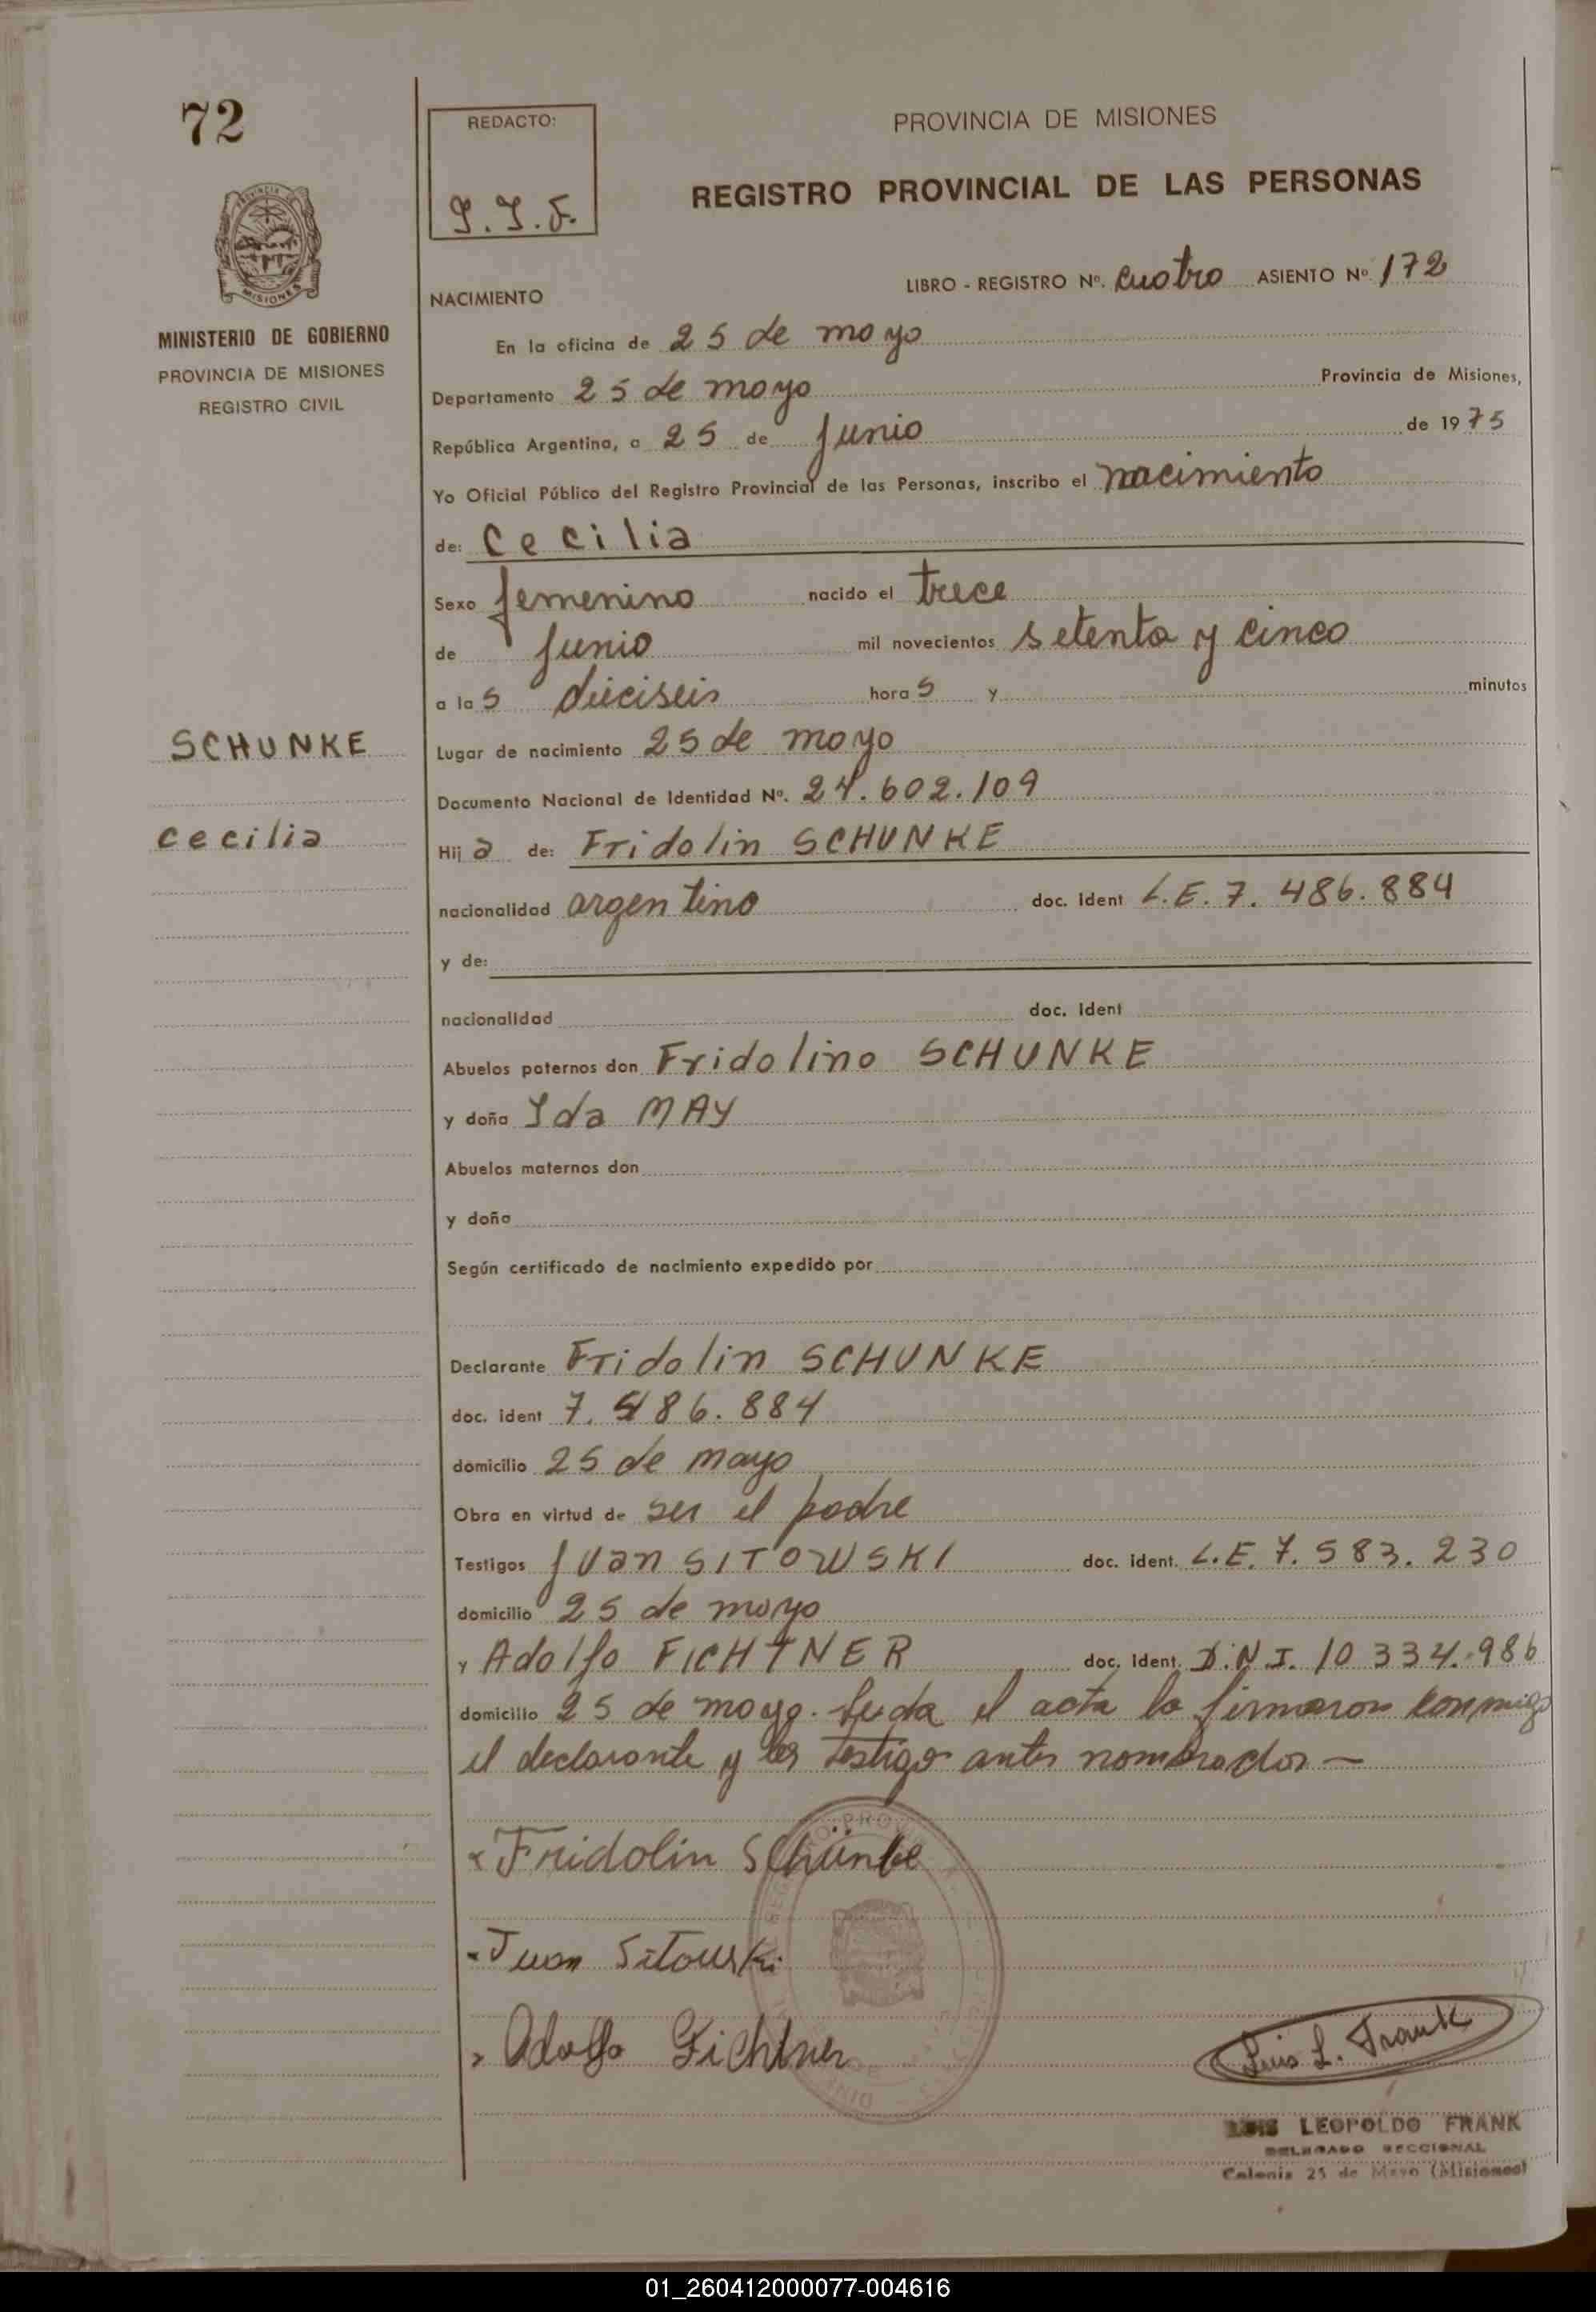 72
REDACTO:
J.J.F.
PROVINCIA DE MISIONES
REGISTRO PROVINCIAL DE LAS PERSONAS
MISIONES
MINISTERIO DE GOBIERNO
PROVINCIA DE MISIONES
REGISTRO CIVIL
LIBRO - REGISTRO Nº. cuatro ASIENTO Nº 172
NACIMIENTO
En la oficina de 25 de mayo
Departamento 25 de mayo Provincia de Misiones,
República Argentina, a 25 de Junio de 1975
Yo Oficial Público del Registro Provincial de las Personas, inscribo el nacimiento
de: Cecilia
Sexo femenino nacido el trece
de Junio mil novecientos setenta y cinco
a las dieciseis horas y minutos
SCHUNKE
Lugar de nacimiento 25 de mayo
Documento Nacional de Identidad Nº. 24.602.109
cecilia
Hija de: Fridolin SCHUNKE
nacionalidad argentino doc. ident L.E. 7.486.884
y de:
nacionalidad doc. ident
Abuelos paternos don Fridolino SCHUNKE
y doña Ida MAY
Abuelos maternos don
y doña
Según certificado de nacimiento expedido por
Declarante Fridolin SCHUNKE
doc. ident 7.486.884
domicilio 25 de mayo
Obra en virtud de ser el padre
Testigos Juan SITOWSKI doc. ident. L.E. 7.583.230
domicilio 25 de mayo
y Adolfo FICHTNER doc. ident. D.N.I. 10 334.986
domicilio 25 de mayo. Leida el acta la firmaron conmigo
el declarante y los testigos antes nombrados —
Fridolin Schünke
Juan Sitouski
Adolfo Fichtner
Luis L. Frank
LUIS LEOPOLDO FRANK
DELEGADO SECCIONAL
Colonia 25 de Mayo (Misiones)
01_260412000077-004616